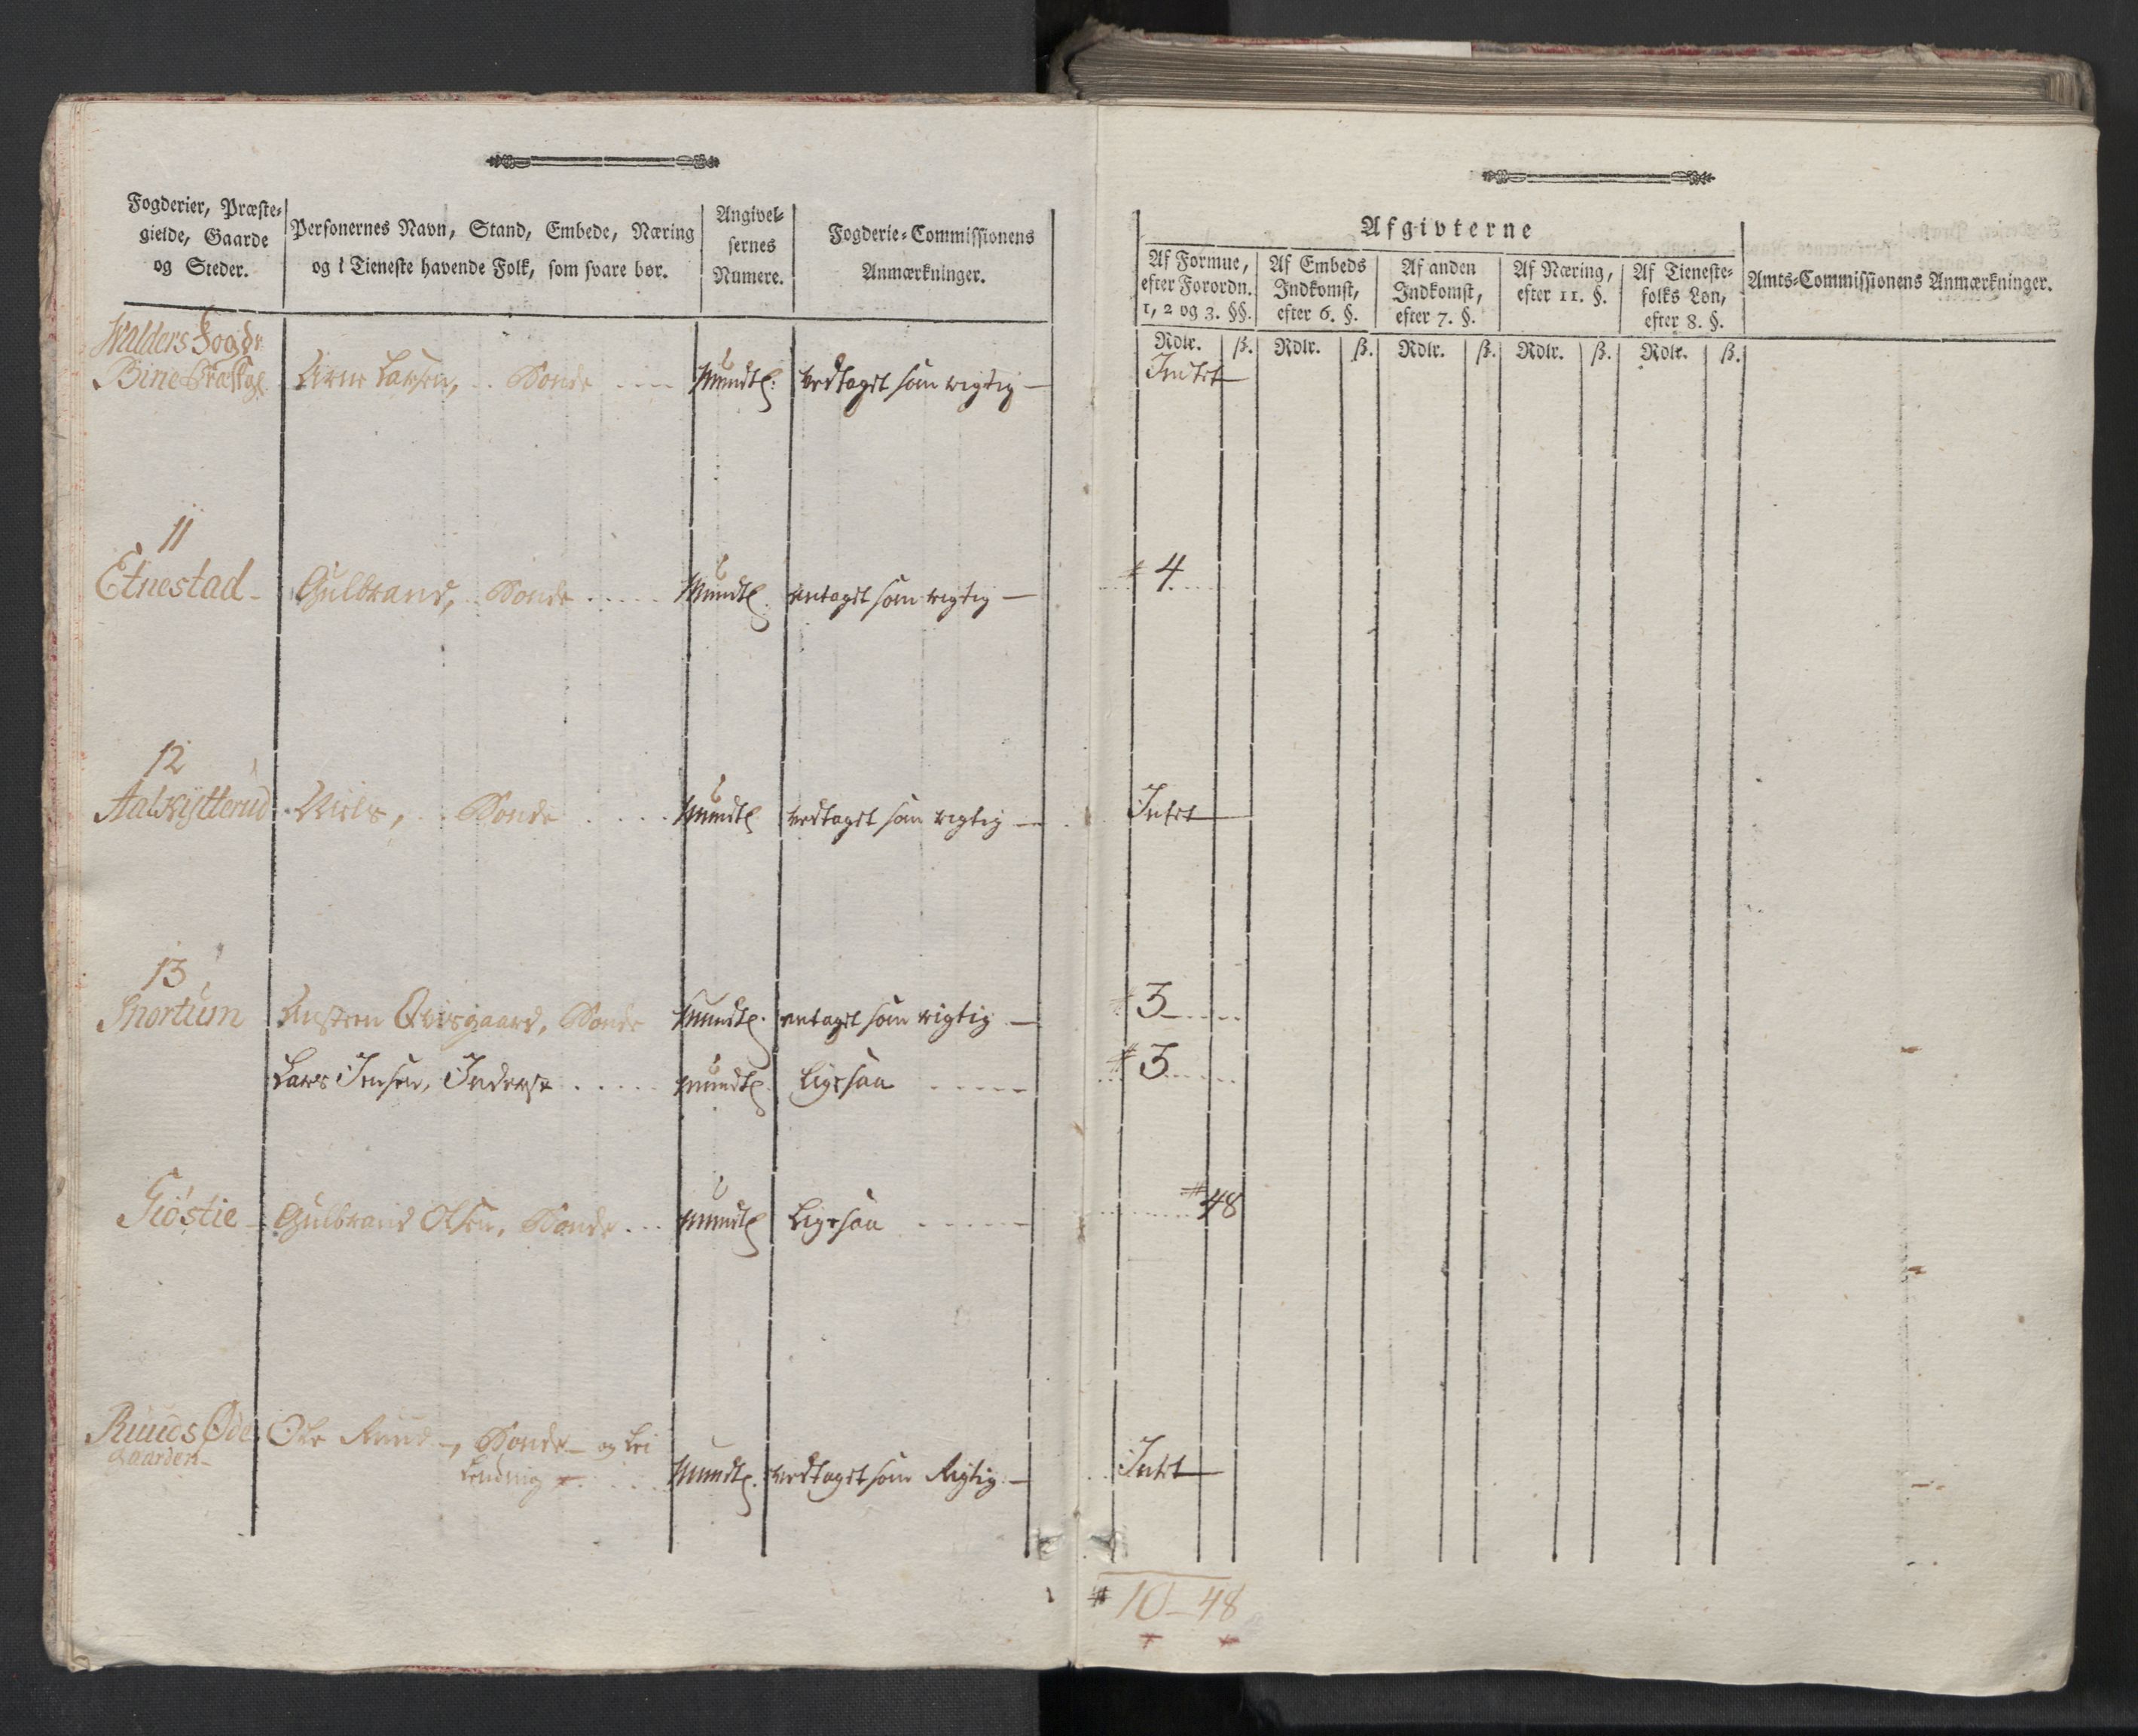 Fogderier, Præste-
gielde, Gaarde
og Steder.
Personernes Navn, Stand, Embede, Næring
og i Tieneste havende Folk, som svare bør.
Angivel-
sernes
Numere.
Fogderie-Commissionens
Anmærkninger.
Walders Fogdr
Birie Præstg. Arne Larsen, Bonde Mundtl. vedtaget som rigtig —
11
Etnestad - Gulbrand, Bonde Mundtl. antaget som rigtig —
12
Niels, Bonde Mundtl vedtaget som rigtig —
13
Snortum Bonde Mundtl. antaget som rigtig —
Lars Jensen, Inderst mundtl. Ligesaa
Giöstie - Gulbrand Olsen, Bonde mundtl Ligesaa
Ruuds Øde Ole Ruud -, Bonde - og Lei
gaarden - lending Mundtl. vedtaget som Rigtig —
Afgivterne
Af Formue,
efter Forordn.
1, 2 og 3. §§.
Af Embeds
Indkomst,
efter 6. §.
Af anden
Indkomst,
efter 7. §.
Af Næring,
efter 11. §.
Af Tieneste-
folks Løn,
efter 8. §.
Amts-Commissionens Anmærkninger.
Rdlr. ß. Rdlr. ß. Rdlr. ß. Rdlr. ß. Rdlr. ß.
Intet
4
Intet
3
3
48
Intet
10 - 48